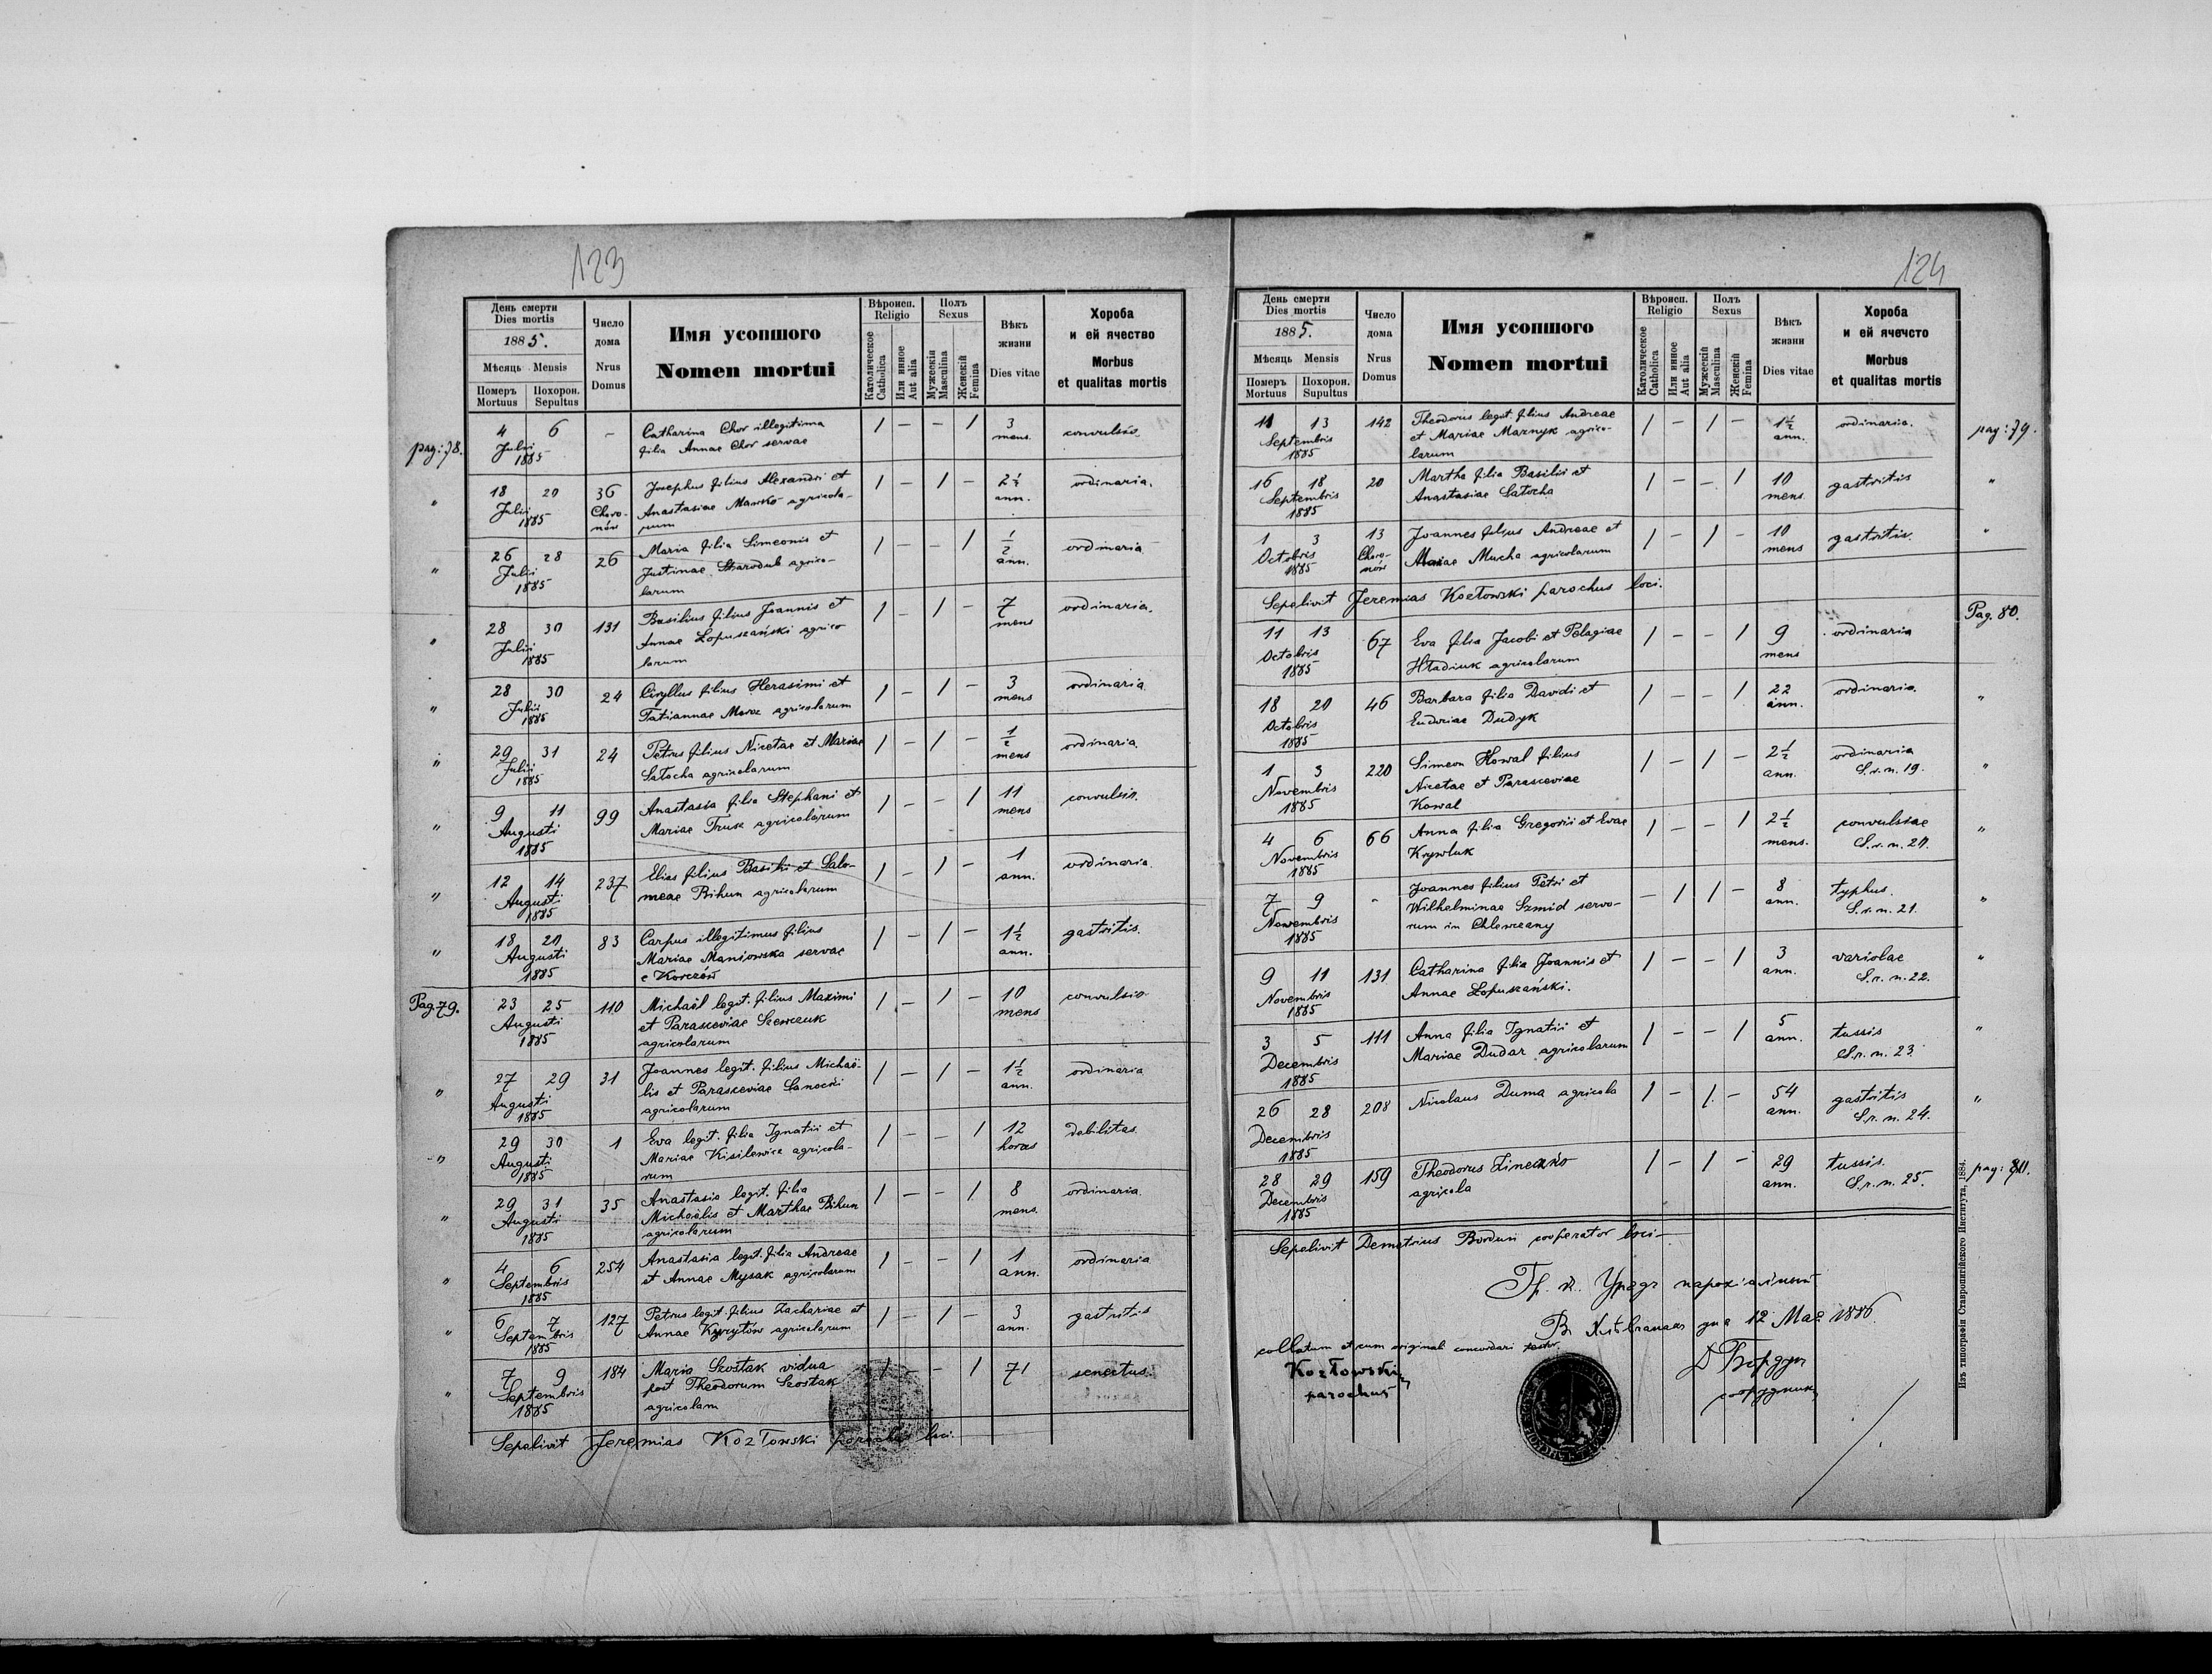 123
День смерти
Dies mortis
1885.
Мѣсяць Mensis
Померъ Похорон.
Mortuus Sepultus
Число
дома
Nrus
Domus
Имя усопшого
Nomen mortui
Вѣроисп.
Religio
Католическое
Catholica
Или инное
Aut alia
Полъ
Sexus
Мужескій
Masculina
Женскій
Femina
Вѣкъ
жизни
Dies vitae
Хороба
и ей ячество
Morbus
et qualitas mortis
pag: 78. 4 6 Julii 1885 - Catharina Chor illegitima
filia Annae Chor servae 1 - - 1 3 mens. convulsio.
" 18 20 Julii 1885 36 Choronów Josephus filius Alexandri et
Anastasiae Marko agricola-
rum 1 - 1 - 2½ ann. ordinaria.
" 26 28 Julii 1885 26 Maria filia Simeonis et
Justinae Starodub agrico-
larum 1 - - 1 ½ ann. ordinaria
" 28 30 Julii 1885 131 Basilius filius Joannis et
Annae Łopuszański agrico
larum 1 - 1 - 7 mens ordinaria.
" 28 30 Julii 1885 24 Ciryllus filius Herasimi et
Tatiannae Moroz agricolarum 1 - 1 - 3 mens ordinaria.
" 29 31 Julii 1885 24 Petrus filius Nicetae et Mariae
Satocha agricolarum 1 - 1 - ½ mens ordinaria.
" 9 11 Augusti 1885 99 Anastasia filia Stephani et
Mariae Trusz agricolarum 1 - - 1 11 mens convulsio.
" 12 14 Augusti 1885 237 Elias filius Basilii et Salo-
meae Bihun agricolarum 1 - 1 - 1 ann. ordinaria.
" 18 20 Augusti 1885 83 Carpus illegitimus filius
Mariae Maniowska servae
e Korczów 1 - 1 - 1½ ann. gastritis.
Pag. 79. 23 25 Augusti 1885 110 Michaël legit. filius Maximi
et Parasceviae Szewczuk
agricolarum 1 - 1 - 10 mens convulsio
" 27 29 Augusti 1885 31 Joannes legit. filius Michaë-
lis et Parasceviae Sanocki
agricolarum 1 - 1 - 1½ ann. ordinaria
" 29 30 Augusti 1885 1 Eva legit. filia Ignatii et
Mariae Kisilewicz agricola-
rum 1 - - 1 12 horas debilitas.
" 29 31 Augusti 1885 35 Anastasia legit. filia
Michaëlis et Marthae Bihun
agricolarum 1 - - 1 8 mens. ordinaria.
" 4 6 Septembris 1885 254 Anastasia legit. filia Andreae
et Annae Mysak agricolarum 1 - - 1 1 ann. ordinaria
" 6 7 Septembris 1885 127 Petrus legit. filius Zachariae et
Annae Kyrytów agricolarum 1 - 1 - 3 ann. gastritis
" 7 9 Septembris 1885 184 Maria Szostak vidua
post Theodorum Szostak
agricolam 1 - - 1 71 senectus.
Sepelivit Jeremias Kozłowski parochus loci.
124
День смерти
Dies mortis
1885.
Мѣсяць Mensis
Померъ Похорон.
Mortuus Supultus
Число
дома
Nrus
Domus
Имя усопшого
Nomen mortui
Вѣроисп.
Religio
Католическое
Catholica
Или инное
Aut alia
Полъ
Sexus
Мужескій
Masculina
Женскій
Femina
Вѣкъ
жизни
Dies vitae
Хороба
и ей ячечсто
Morbus
et qualitas mortis
11 13 Septembris 1885 142 Theodorus legit. filius Andreae
et Mariae Marnyk agrico-
larum 1 - 1 - 1½ ann. ordinaria. pag: 79.
16 18 Septembris 1885 20 Martha filia Basilii et
Anastasiae Satocha 1 - - 1 10 mens. gastritis "
1 3 Octobris 1885 13 Choronów Joannes filius Andreae et
Mariae Mucha agricolarum 1 - 1 - 10 mens gastritis. "
Sepelivit Jeremias Kozłowski parochus loci.
11 13 Octobris 1885 67 Eva filia Jacobi et Pelagiae
Hładiuk agricolarum 1 - - 1 9 mens ordinaria Pag. 80.
18 20 Octobris 1885 46 Barbara filia Davidi et
Eudoxiae Dudyk 1 - - 1 22 ann. ordinaria. "
1 3 Novembris 1885 220 Simeon Kowal filius
Nicetae et Parasceviae
Kowal 1 - 1 - 2½ ann. ordinaria
S.r.n. 19. "
4 6 Novembris 1885 66 Anna filia Gregorii et Evae
Krywluk 1 - - 1 2½ mens. convulsiae
S.r.n. 20. "
7 9 Novembris 1885 - Joannes filius Petri et
Wilhelminae Szmid servo-
rum in Chlewczany - 1 1 - 8 ann. typhus.
S.r.n. 21. "
9 11 Novembris 1885 131 Catharina filia Joannis et
Annae Łopuszański. 1 - - 1 3 ann. variolae
S.r.n. 22. "
3 5 Decembris 1885 111 Anna filia Ignatii et
Mariae Dudar agricolarum 1 - - 1 5 ann. tussis
S.r.n. 23. "
26 28 Decembris 1885 208 Nicolaus Duma agricola 1 - 1 - 54 ann. gastritis
S.r.n. 24. "
28 29 Decembris 1885 159 Theodorus Zineczko
agricola 1 - 1 - 29 ann. tussis.
S.r.n. 25. pag: 80.
Sepelivit Demetrius Bordun cooperator loci
Гр. к. Урядъ парохіальный
В Хлѣвчанахъ дня 12 Мая 1886
collatum et cum original concordari testor.
Kozłowski
parochus
Д Бордун
сотрудникъ
Изъ типографіи Ставропигійского Института, 1884.